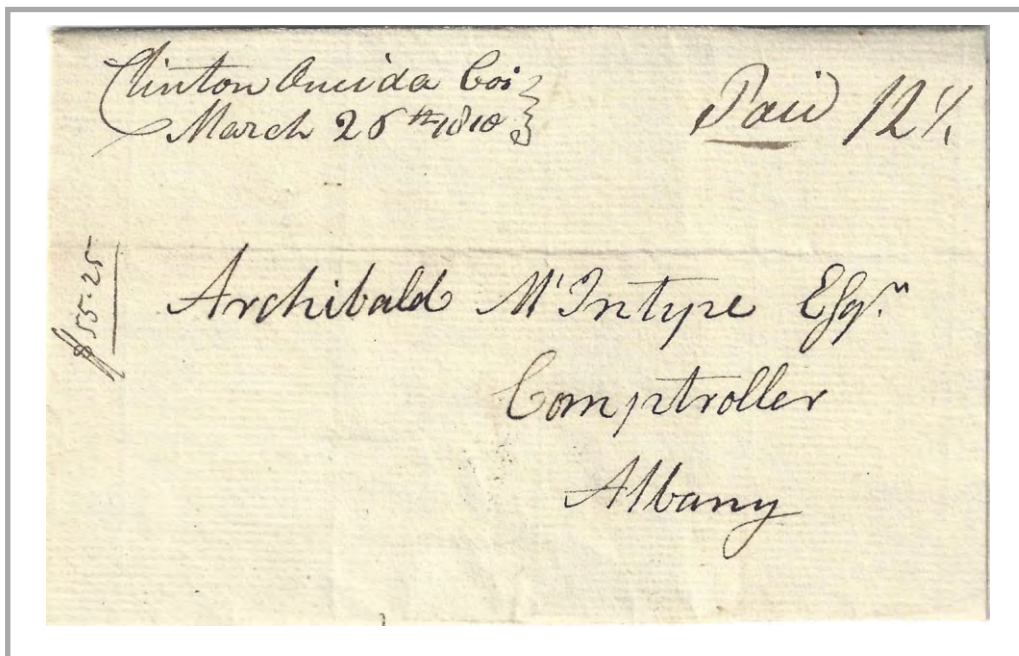 Clinton Oneida Co:
March 26th 1810
Paid 12½
$55.25
Archibald McIntype Esqr.
Comptroller
Albany